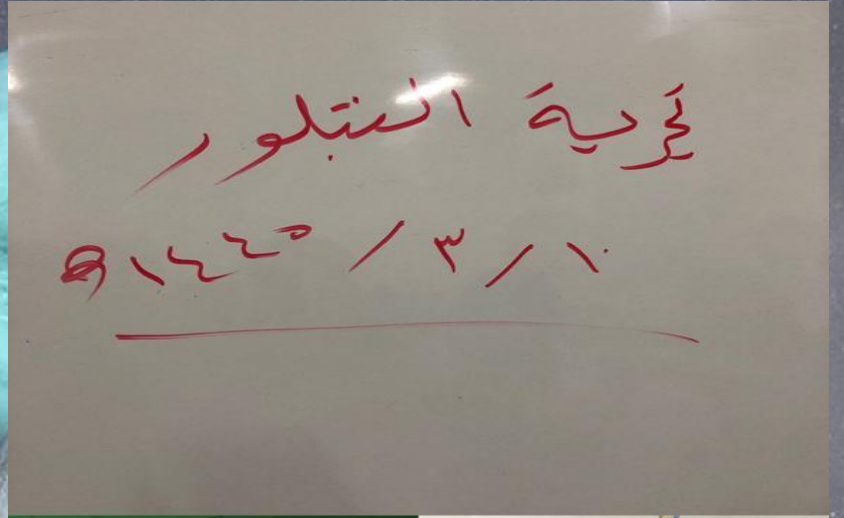 تجربة التبلور
١٠ / ٣ / ١٤٤٥ هـ